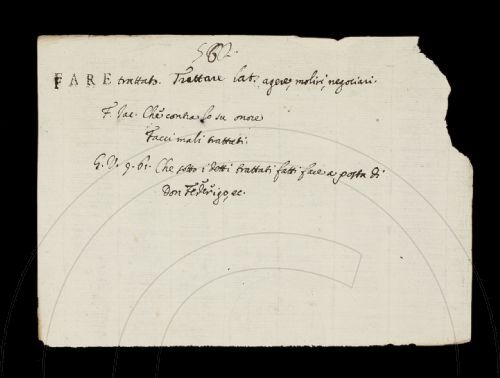 FARE trattato. Trattare lat. agere, moliri, negociari.
F. Jac. Che contra lo su onore
Facci mali trattati.
G. V. 9. 61. Che sotto i detti trattati fatti fare a posta di
Don Federigo, ec.